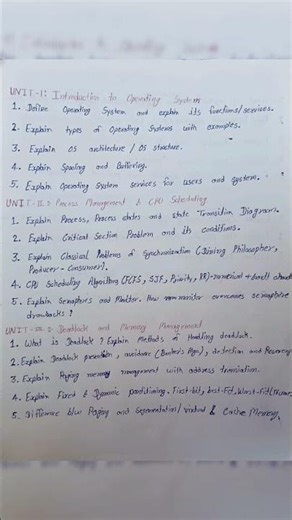 UNIT-I: Introduction to Operating System
1. Define Operating System and explain its functions/services.
2. Explain types of Operating Systems with examples.
3. Explain OS Architecture / OS structure.
4. Explain Spooling and Buffering.
5. Explain Operating System services for users and system.
UNIT-II: Process Management & CPU Scheduling
1. Explain Process, Process states and state Transition Diagram.
2. Explain Critical Section Problem and its conditions.
3. Explain Classical Problems of Synchronization (Dining Philosopher,
Producer-Consumer).
4. CPU Scheduling Algorithm (FCFS, SJF, Priority, RR)-numerical +
5. Explain Semaphores and Monitor. How monitor overcomes semaphore
drawbacks?
UNIT-III: Deadlock and Memory Management
1. What is Deadlock? Explain Methods of Handling deadlock.
2. Explain Deadlock prevention, avoidance (Banker's Algo), detection and Recovery
3. Explain Paging memory management with address translation.
4. Explain Fixed & Dynamic partitioning. First-fit, best-fit, Worst-fit
5. Difference b/w Paging and Segmentation/ virtual & Cache Memory